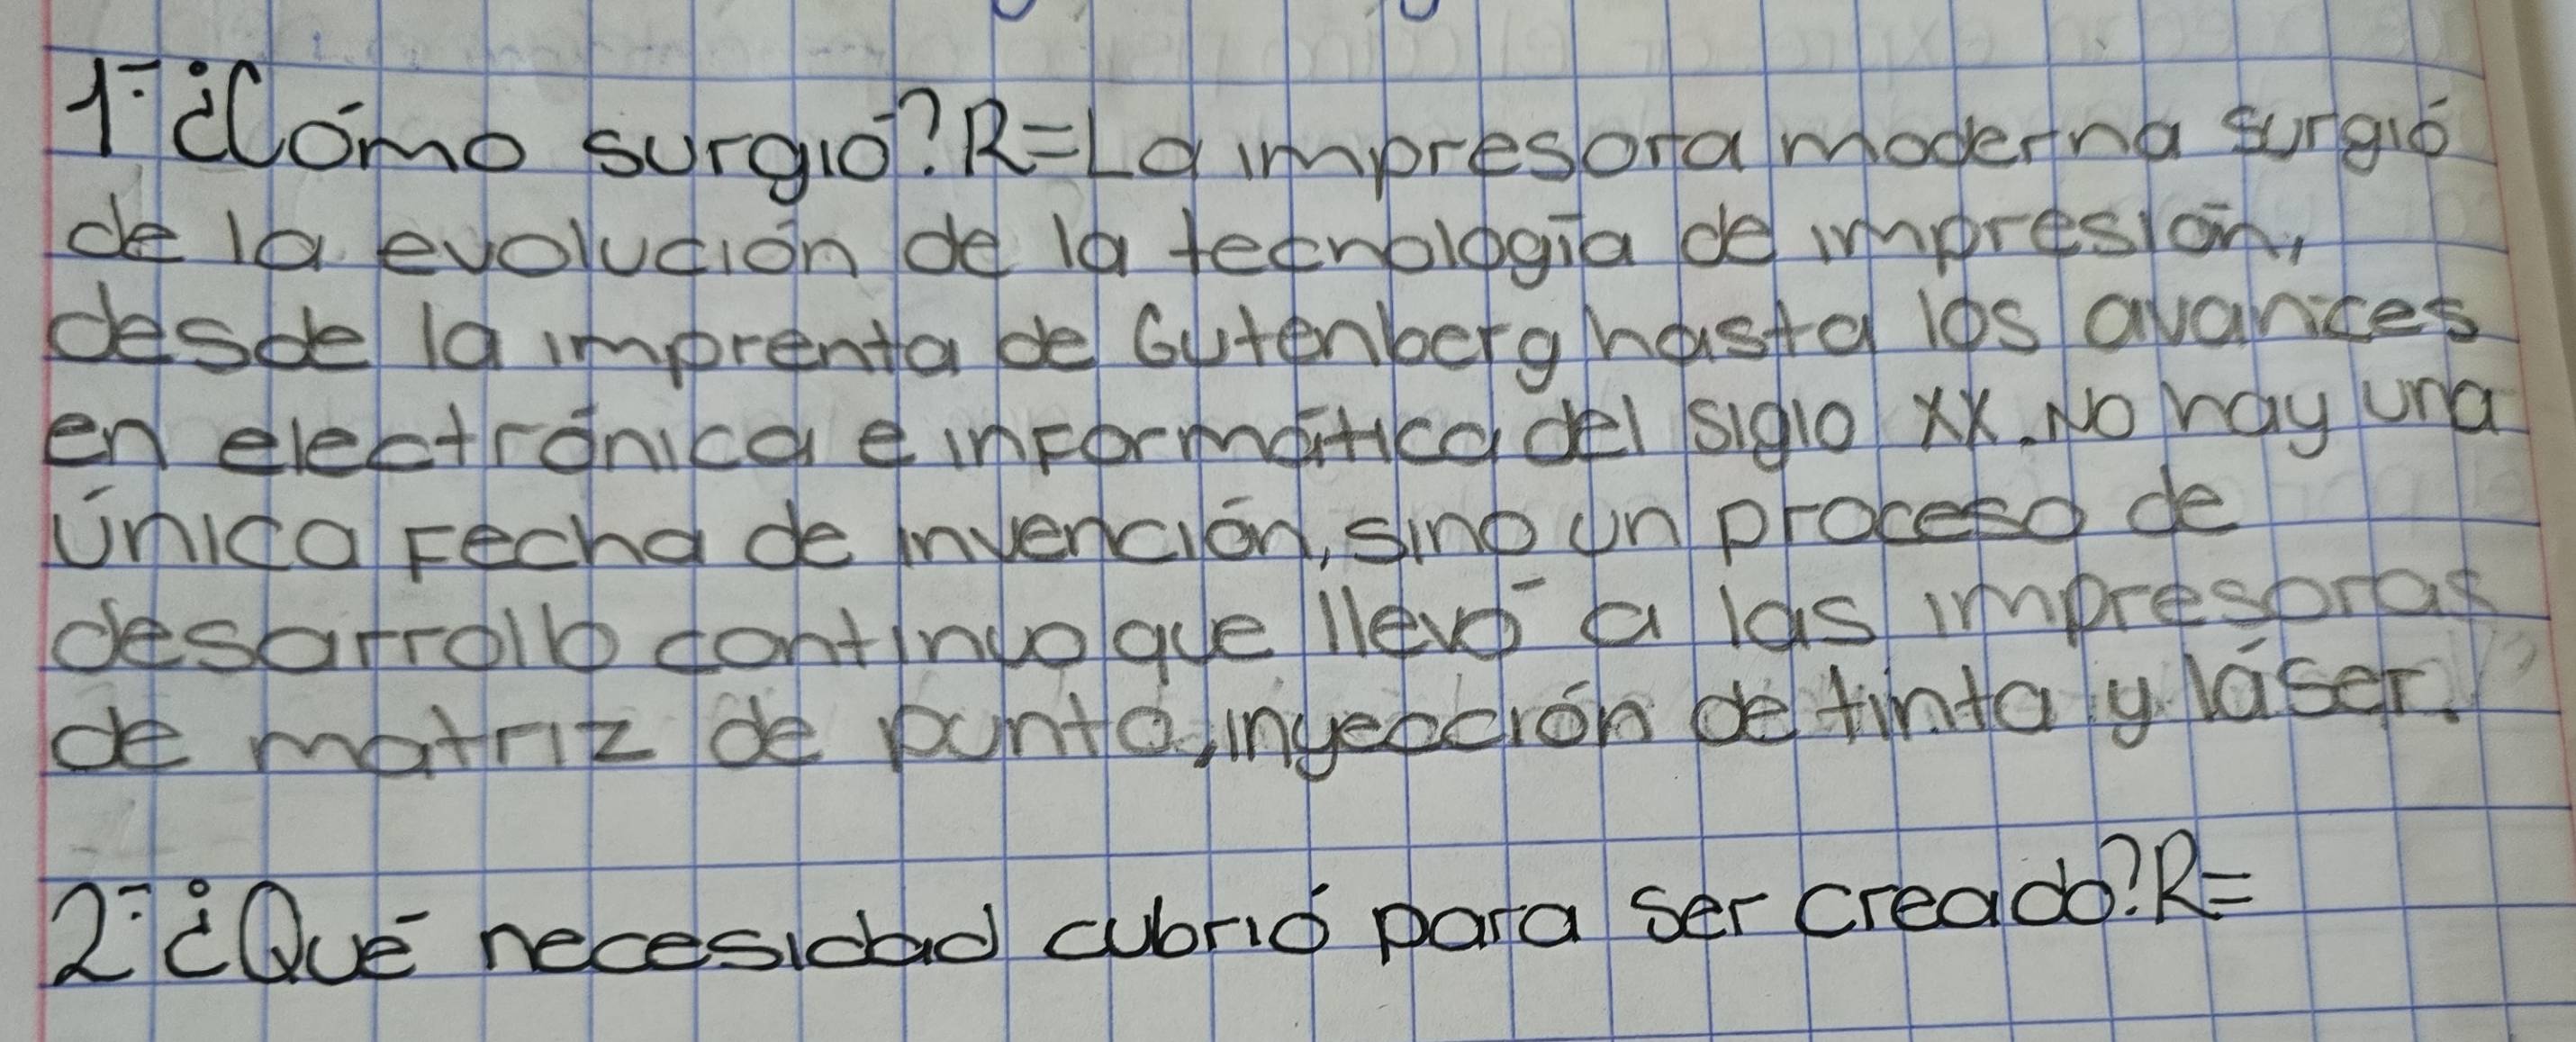 1.- ¿Cómo surgió? R= La impresora moderna surgió
de la evolución de la tecnología de impresión,
desde la imprenta de Gutenberg hasta los avances
en electrónica e informática del siglo XX. No hay una
única fecha de invención, sino un proceso de
desarrollo continuo que llevó a las impresoras
de matriz de punto, inyección de tinta y láser.
2.- ¿Qué necesidad cubrió para ser creado? R=